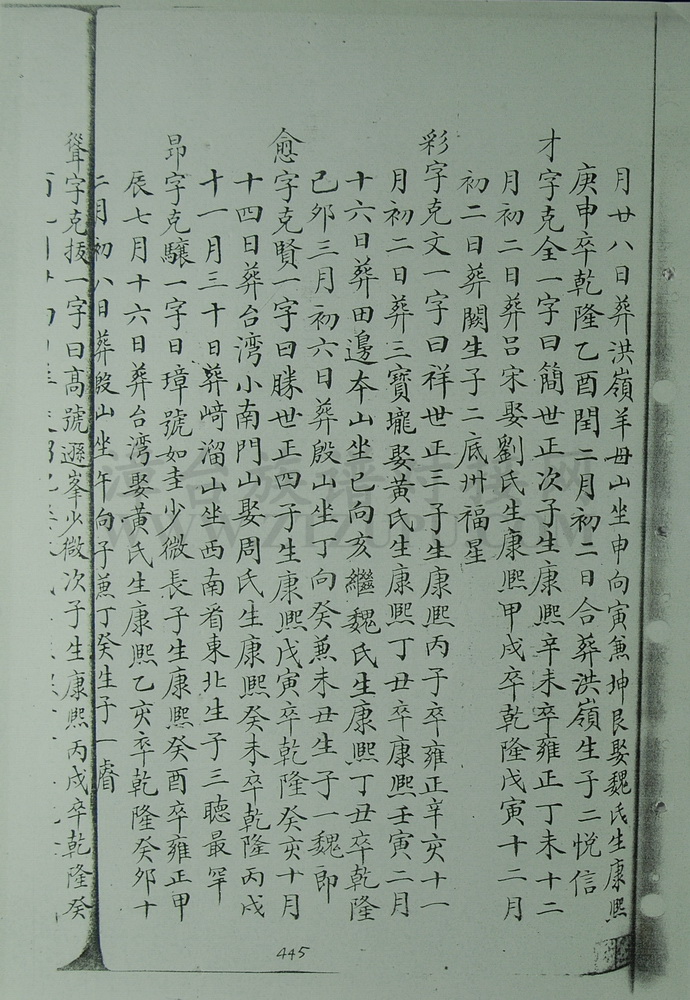 月廿八日葬洪嶺羊母山坐申向寅兼坤艮娶魏氏生康熙
庚申卒乾隆乙酉閏二月初二日合葬洪嶺生子二悅信
才字克全一字曰簡世正次子生康熙辛未卒雍正丁未十二
月初二日葬呂宋娶劉氏生康熙甲戍卒乾隆戊寅十二月
初二日葬闕生子二底卅福星
彩字克文一字曰祥世正三子生康熙丙子卒雍正辛亥十一
月初二日葬三寶壠娶黃氏生康熙丁丑卒康熙壬寅二月
十六日葬田邊夲山坐巳向亥繼魏氏生康熙丁丑卒乾隆
己夘三月初六日葬殷山坐丁向癸兼未丑生子一魏即
愈字克賢一字曰勝世正四子生康熙戊寅卒乾隆癸亥十月
十四日葬台湾小南門山娶周氏生康熙癸未卒乾隆丙戍
十一月三十日葬﨑溜山坐西南看東北生子三聰最罕
昂字克驤一字曰璋號如圭少微長子生康熙癸酉卒雍正甲
辰七月十六日葬台湾娶黃氏生康熙乙亥卒乾隆癸夘十
二月初八日葬殷山坐午向子兼丁癸生子一睿
聳字克拔一字曰髙號遜峯少微次子生康熙丙戍卒乾隆癸
445